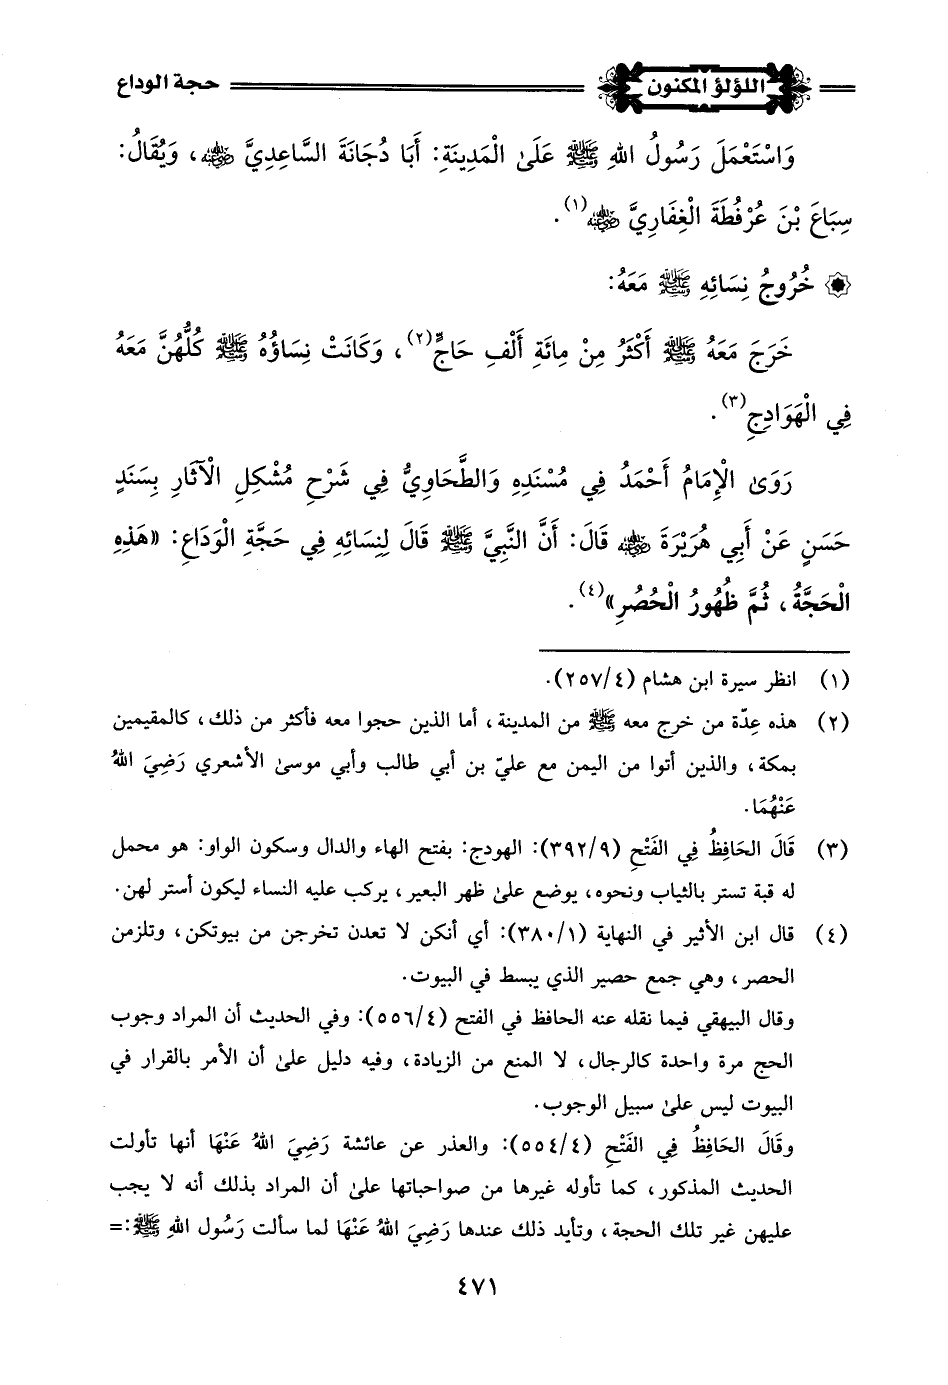 اللؤلؤ المكنون حجة الوداع
وَاسْتَعْمَلَ رَسُولُ اللهِ ﷺ عَلَىٰ الْمَدِينَةِ: أَبَا دُجَانَةَ السَّاعِدِيَّ رضي الله عنه، وَيُقَالُ:
سِبَاعَ بْنَ عُرْفُطَةَ الْغِفَارِيَّ رضي الله عنه(١).
خُرُوجُ نِسَائِهِ ﷺ مَعَهُ:
خَرَجَ مَعَهُ ﷺ أَكْثَرُ مِنْ مِائَةِ أَلْفِ حَاجٍّ(٢)، وَكَانَتْ نِسَاؤُهُ ﷺ كُلُّهُنَّ مَعَهُ
فِي الْهَوَادِجِ(٣).
رَوَىٰ الْإِمَامُ أَحْمَدُ فِي مُسْنَدِهِ وَالطَّحَاوِيُّ فِي شَرْحِ مُشْكِلِ الْآثَارِ بِسَنَدٍ
حَسَنٍ عَنْ أَبِي هُرَيْرَةَ رضي الله عنه قَالَ: أَنَّ النَّبِيَّ ﷺ قَالَ لِنِسَائِهِ فِي حَجَّةِ الْوَدَاعِ: «هَذِهِ
الْحَجَّةُ، ثُمَّ ظُهُورُ الْحُصُرِ»(٤).
(١) انظر سيرة ابن هشام (٢٥٧/٤).
(٢) هذه عِدّة من خرج معه ﷺ من المدينة، أما الذين حجوا معه فأكثر من ذلك، كالمقيمين
بمكة، والذين أتوا من اليمن مع عليّ بن أبي طالب وأبي موسىٰ الأشعري رَضِيَ اللهُ
عَنْهُمَا.
(٣) قَالَ الحَافِظُ فِي الفَتْحِ (٣٩٢/٩): الهودج: بفتح الهاء والدال وسكون الواو: هو محمل
له قبة تستر بالثياب ونحوه، يوضع علىٰ ظهر البعير، يركب عليه النساء ليكون أستر لهن.
(٤) قال ابن الأثير في النهاية (٣٨٠/١): أي أنكن لا تعدن تخرجن من بيوتكن، وتلزمن
الحصر، وهي جمع حصير الذي يبسط في البيوت.
وقال البيهقي فيما نقله عنه الحافظ في الفتح (٥٥٦/٤): وفي الحديث أن المراد وجوب
الحج مرة واحدة كالرجال، لا المنع من الزيادة، وفيه دليل علىٰ أن الأمر بالقرار في
البيوت ليس علىٰ سبيل الوجوب.
وقَالَ الحَافِظُ فِي الفَتْحِ (٥٥٤/٤): والعذر عن عائشة رَضِيَ اللهُ عَنْهَا أنها تأولت
الحديث المذكور، كما تأوله غيرها من صواحباتها علىٰ أن المراد بذلك أنه لا يجب
عليهن غير تلك الحجة، وتأيد ذلك عندها رَضِيَ اللهُ عَنْهَا لما سألت رَسُول اللهِ ﷺ:=
٤٧١